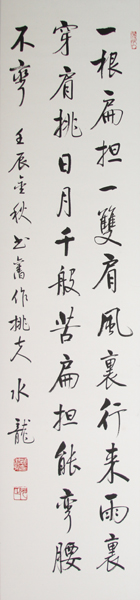 一根扁担一雙肩風裏行来雨裏
穿肩挑日月千般苦扁担能彎腰
不彎 壬辰金秋书舊作挑夫 水龍